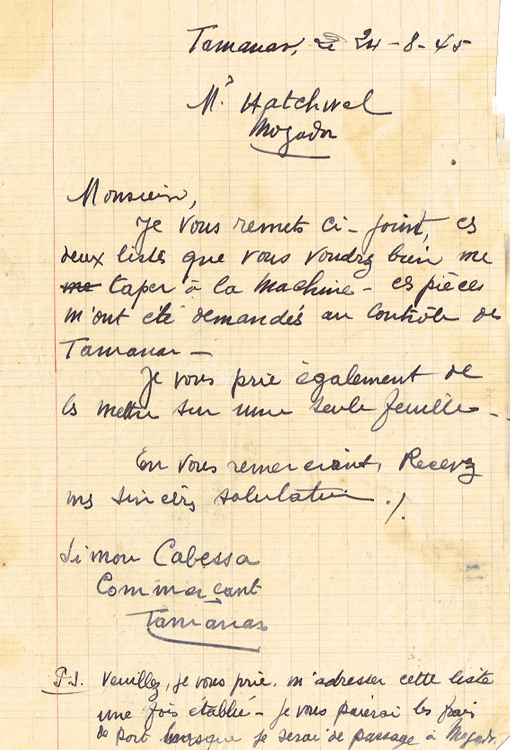 Tamanar, le 24-8-45
Mr Hatchwel
Mogador
Monsieur,
Je vous remets ci-joint, ces
deux listes que vous voudrez bien me
me taper à la machine - ces pièces
m'ont été demandés au Contrôle de
Tamanar -
Je vous prie également de
les mettre sur une seule feuille -
En vous remerciant, Recevez
mes sincères salutations ./.
Simon Cabessa
Commerçant
Tamanar
P.S. Veuillez, je vous prie, m'adresser cette liste
une fois établie - je vous paierai les frais
de port lorsque je serai de passage à Mogador /